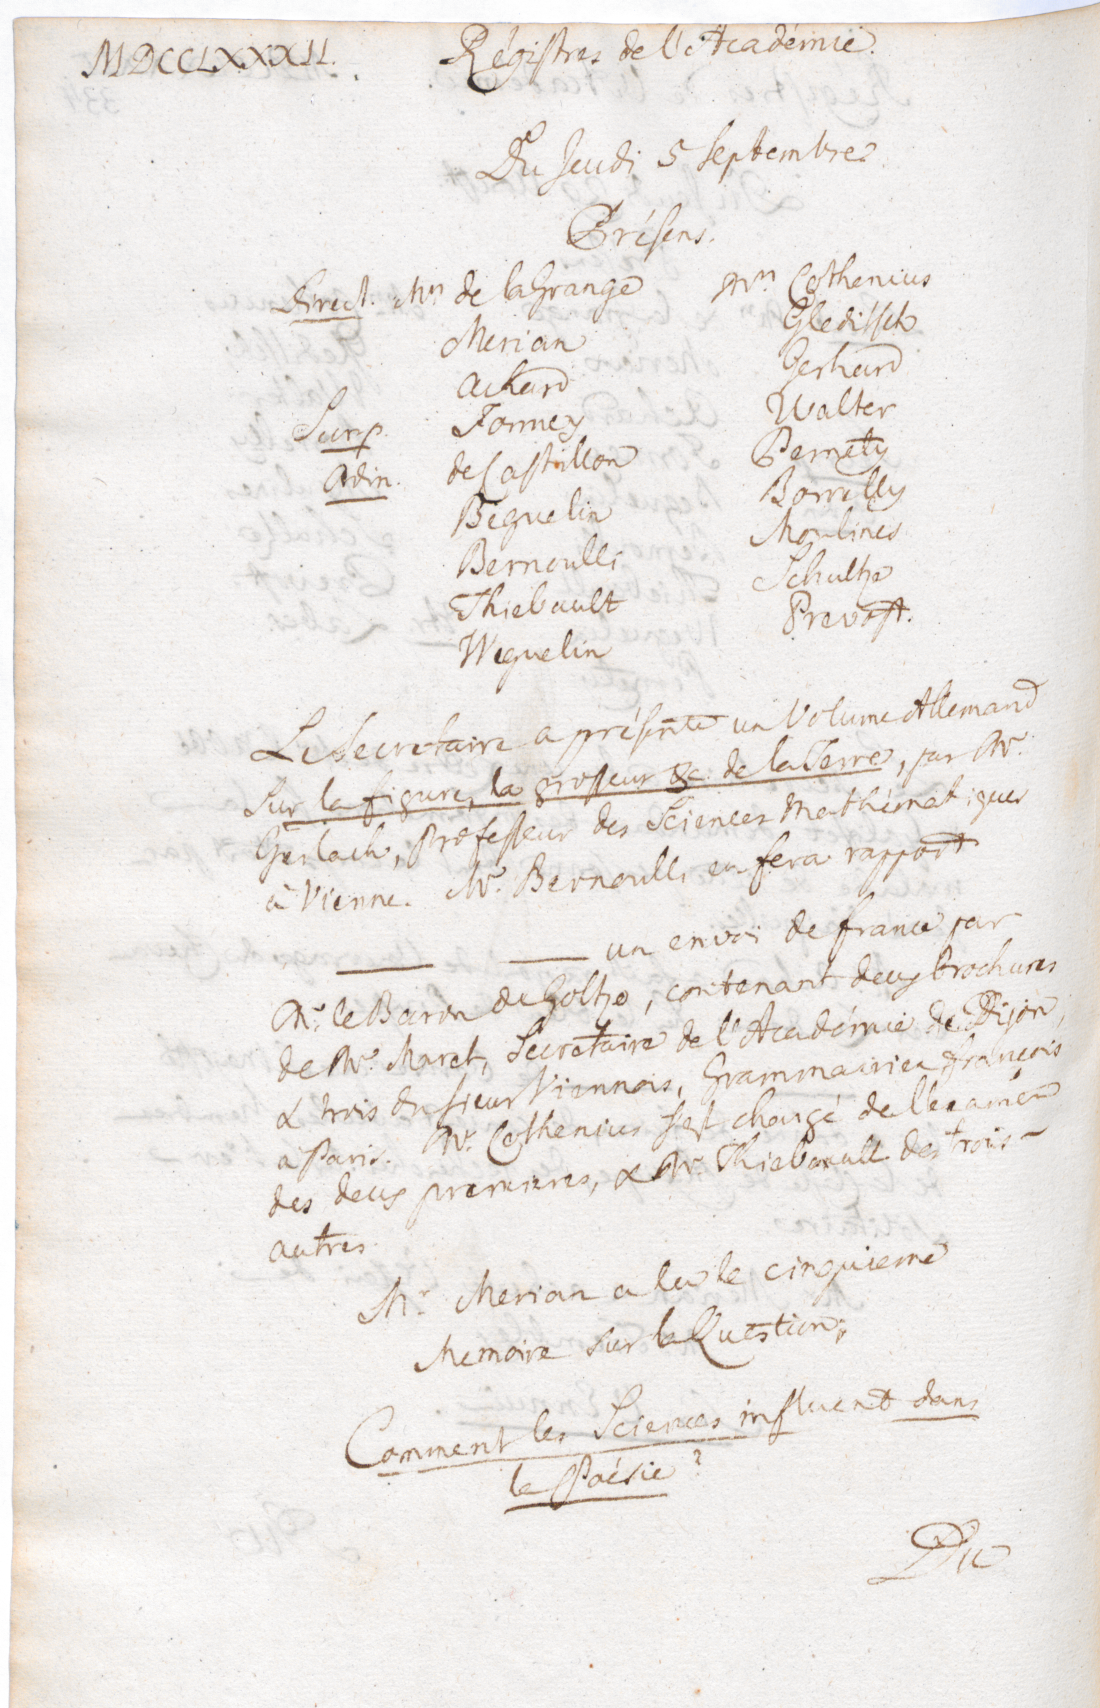 MDCCLXXXII. Régistres de l'Académie.
Du Jeudi 5 Septembre.
Présens.
Direct. Mrs de la Grange
Merian
Achard
Formey
de Castillon
Beguelin
Bernoulli
Thiebault
Weguelin
Mrs Cothenius
Gleditsch
Gerhard
Walter
Pernety
Borrelly
Moulines
Schultze
Prevost.
Le Secretaire a présenté un Volume Allemand
Sur la figure, la grosseur &c. de la Terre, par Mr.
Gerlach, Professeur des Sciences Mathématiques
à Vienne. Mr. Bernoulli en fera rapport
un envoi de France par
Mr. le Baron de Goltze, contenant deux brochures
de Mr. Maret, Secretaire de l'Académie de Dijon,
& trois du Sieur Viennois, Grammairien françois
à Paris. Mr. Cothenius s'est chargé de l'examen
des deux premieres, & Mr. Thiebault des trois
autres.
Mr. Merian a lu le cinquieme
Memoire sur la Question;
Comment les Sciences influent dans
la Poésie?
Du